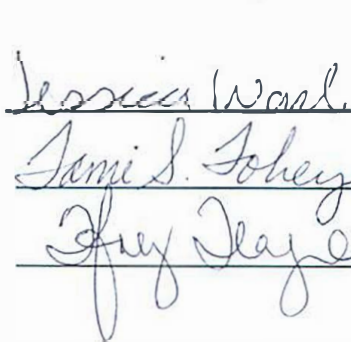 Jessica Ward
Tami S. Fohey
Teague